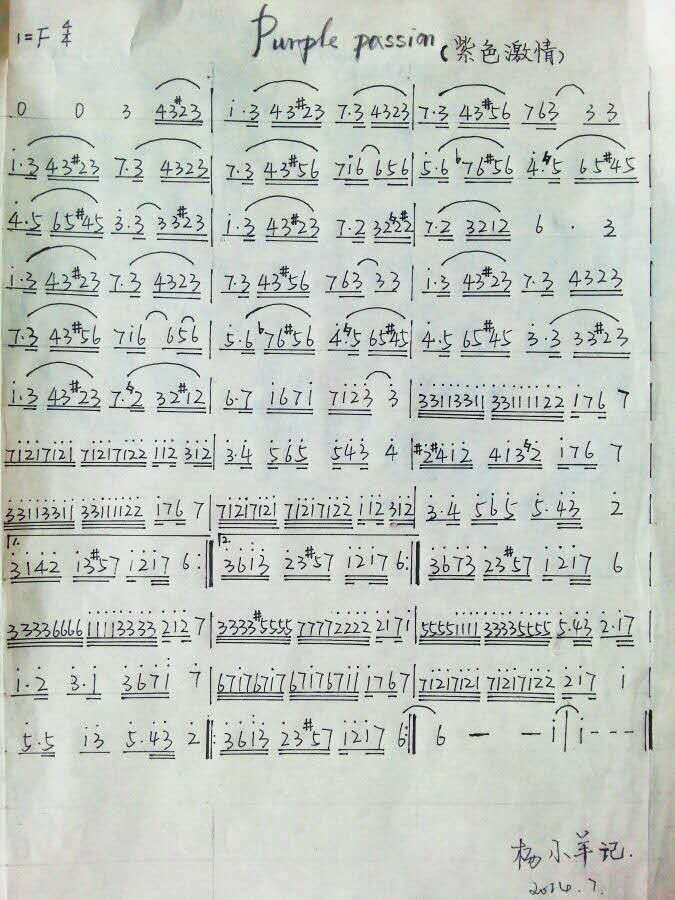 1=F 4/4 Purple passion (紫色激情)
0 0 3 43#23 | i·3 43#23 7·3 4323 | 7·3 43#56 763 33 |
i·3 43#23 7·3 4323 | 7·3 43#56 7i6 656 | 5·6 b76#56 4·♮5 65#45 |
4·5 65#45 3·3 33#23 | i·3 43#23 7·2 32♮2#2 | 7·2 3212 6 · 3
i·3 43#23 7·3 4323 | 7·3 43#56 763 33 | i·3 43#23 7·3 4323
7·3 43#56 7i6 656 | 5·6 b76#56 4·♮5 65#45 | 4·5 65#45 3·3 33#23 |
i·3 43#23 7·♮2 32#12 | 6·7 i671 7123 3 | 33113311 33111122 176 7
71217121 71217122 112 312 | 3·4 565 543 4 | #2#412 413♮2 176 7
33113311 33111122 176 7 | 71217121 71217122 112 312 | 3·4 565 5·43 2
1. 3142 13#57 1217 6 :|| 2. 3613 23#57 1217 6 :|| 3673 23#57 1217 6
33336666 11113333 212 7 | 3333#5555 77772222 2171 | 55551111 33335555 5·43 2·17 |
1·2 3·1 3671 7 | 67176717 67176711 1767 | 71217121 71217122 217 1
5·5 13 5·43 2 ||: 3613 23#57 1217 6 :|| 6 — — i | i - - - ||
杨小羊记.
2014.7.